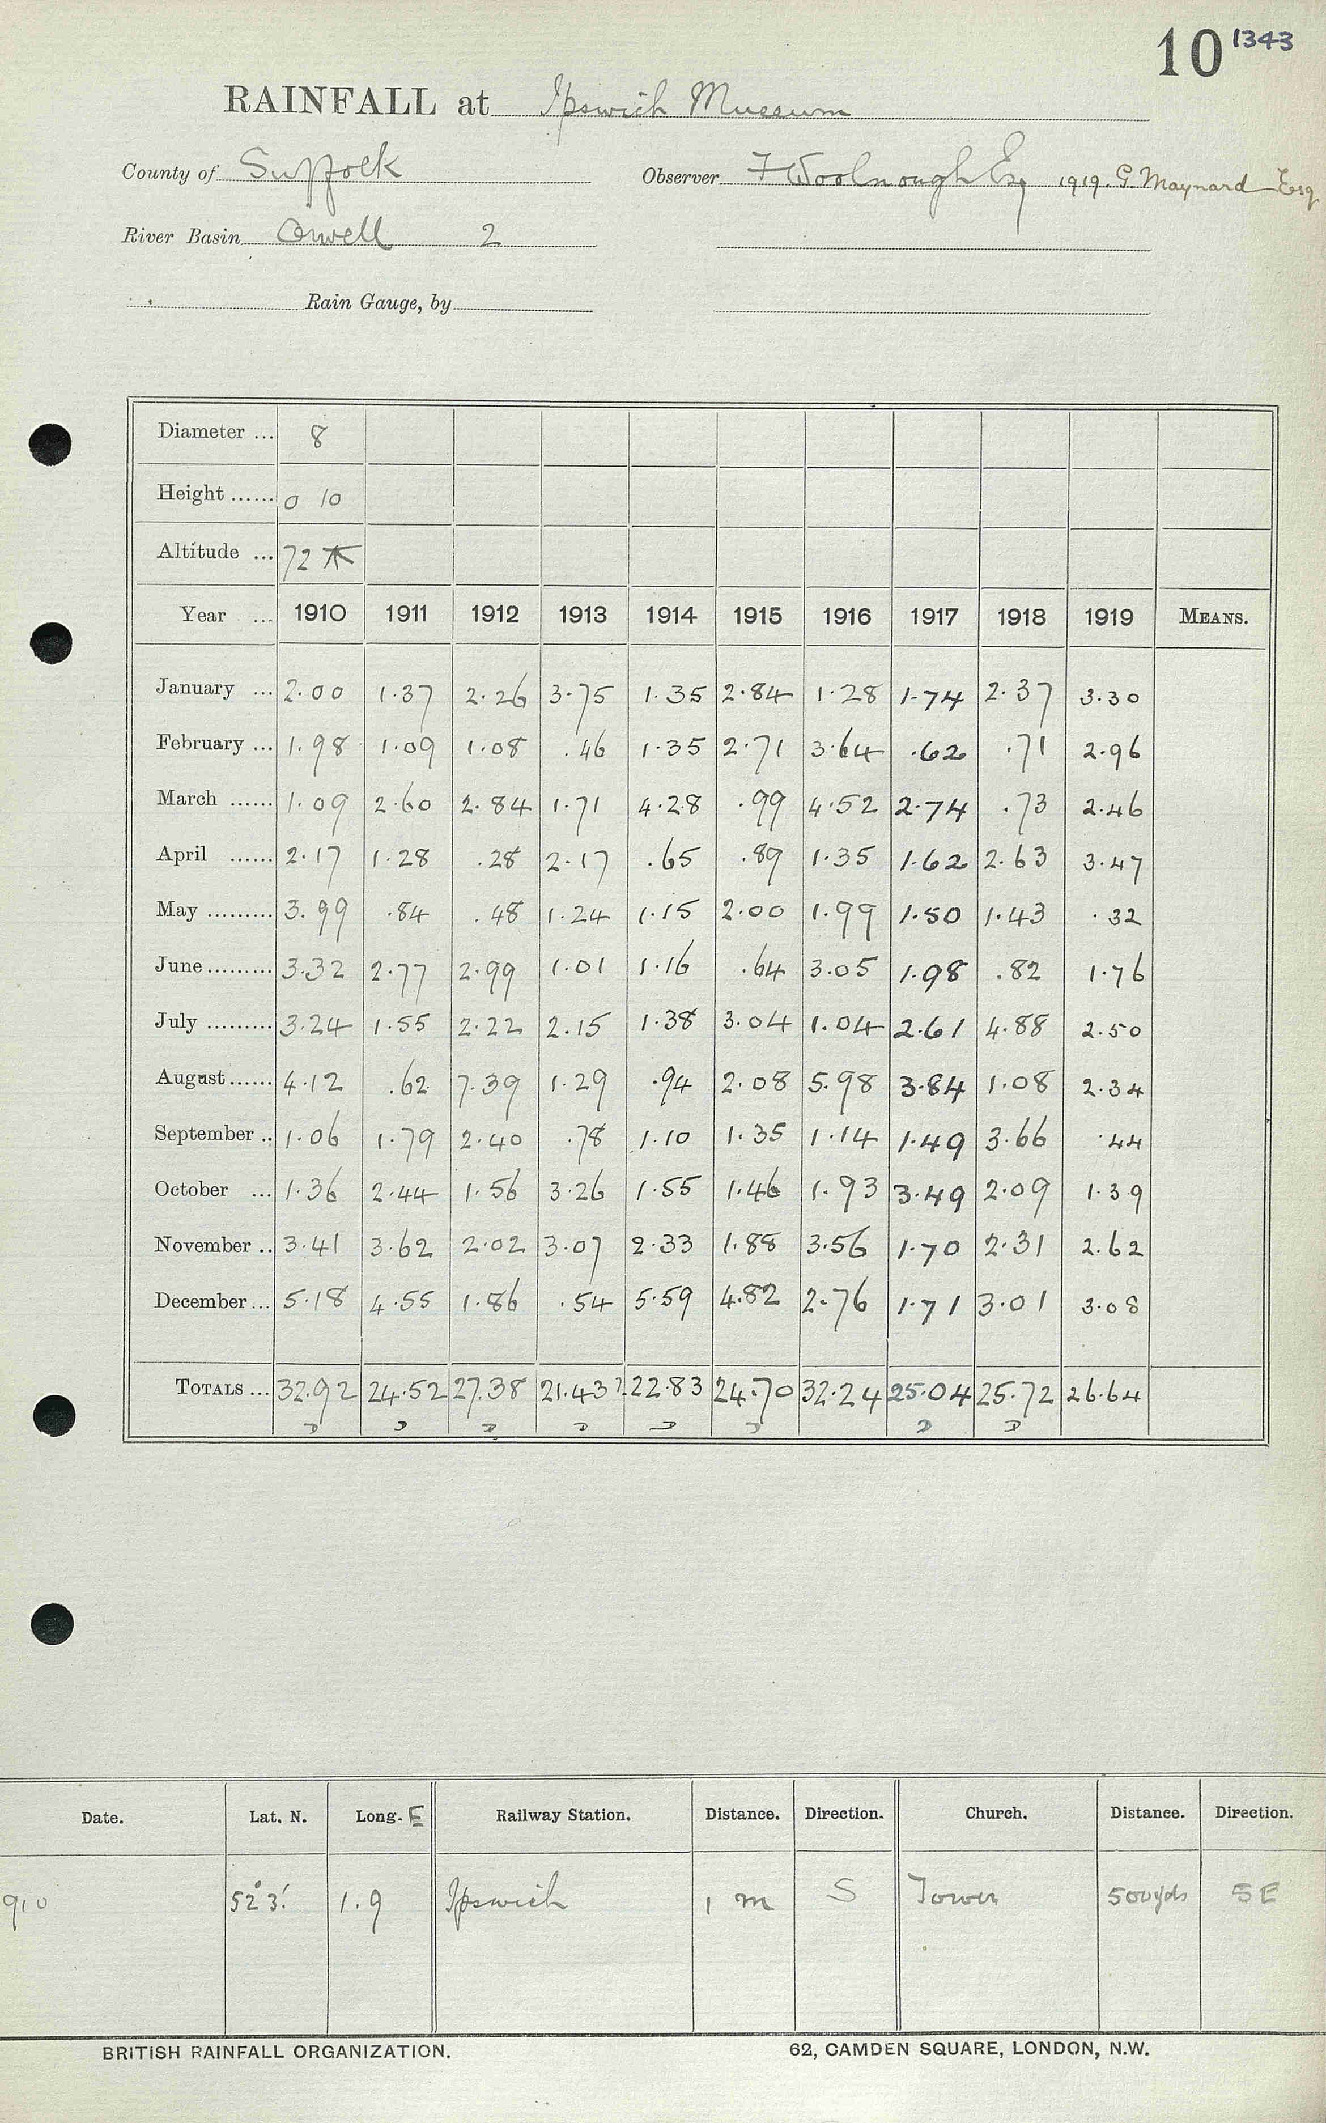 10 1343
RAINFALL at Ipswich Museum
County of Suffolk Observer F Woolnough Esq 1919. G. Maynard Esq
River Basin Orwell 2
Rain Gauge, by
Diameter ... 8
Height ...... 0 10
Altitude ... 72
Year ... 1910 1911 1912 1913 1914 1915 1916 1917 1918 1919 MEANS.
January ... 2.00 1.37 2.26 3.75 1.35 2.84 1.28 1.74 2.37 3.30
February ... 1.98 1.09 1.08 .46 1.35 2.71 3.64 .62 .71 2.96
March ...... 1.09 2.60 2.84 1.71 4.28 .99 4.52 2.74 .73 2.46
April ...... 2.17 1.28 .28 2.17 .65 .89 1.35 1.62 2.63 3.47
May ......... 3.99 .84 .48 1.24 1.15 2.00 1.99 1.50 1.43 .32
June ......... 3.32 2.77 2.99 1.01 1.16 .64 3.05 1.98 .82 1.76
July ......... 3.24 1.55 2.22 2.15 1.38 3.04 1.04 2.61 4.88 2.50
August ...... 4.12 .62 7.39 1.29 .94 2.08 5.98 3.84 1.08 2.34
September .. 1.06 1.79 2.40 .78 1.10 1.35 1.14 1.49 3.66 .44
October ... 1.36 2.44 1.56 3.26 1.55 1.46 1.93 3.49 2.09 1.39
November .. 3.41 3.62 2.02 3.07 2.33 1.88 3.56 1.70 2.31 2.62
December ... 5.18 4.55 1.86 .54 5.59 4.82 2.76 1.71 3.01 3.08
TOTALS ... 32.92 24.52 27.38 21.43? 22.83 24.70 32.24 25.04 25.72 26.64
Date. Lat. N. Long. E Railway Station. Distance. Direction. Church. Distance. Direction.
910 52°3' 1.9 Ipswich 1 m S Tower 500 yds SE
BRITISH RAINFALL ORGANIZATION. 62, CAMDEN SQUARE, LONDON, N.W.